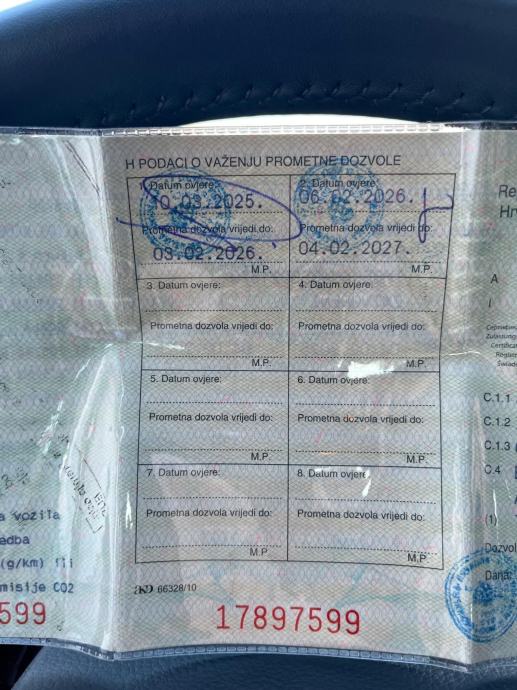 H PODACI O VAŽENJU PROMETNE DOZVOLE
1. Datum ovjere:
10.03.2025.
Prometna dozvola vrijedi do:
03.02.2026.
M.P.
2. Datum ovjere:
06.02.2026.
Prometna dozvola vrijedi do:
04.02.2027.
M.P.
3. Datum ovjere:
Prometna dozvola vrijedi do:
M.P.
4. Datum ovjere:
Prometna dozvola vrijedi do:
M.P.
5. Datum ovjere:
Prometna dozvola vrijedi do:
M.P.
6. Datum ovjere:
Prometna dozvola vrijedi do:
M.P.
7. Datum ovjere:
Prometna dozvola vrijedi do:
M.P.
8. Datum ovjere:
Prometna dozvola vrijedi do:
M.P.
AKD 66328/10
17897599
a vozila
edba
(g/km) ili
misije CO2
599
Re
Hr
A
I
C.1.1
C.1.2
C.1.3
C.4
(1)
Dozvol
Dana: